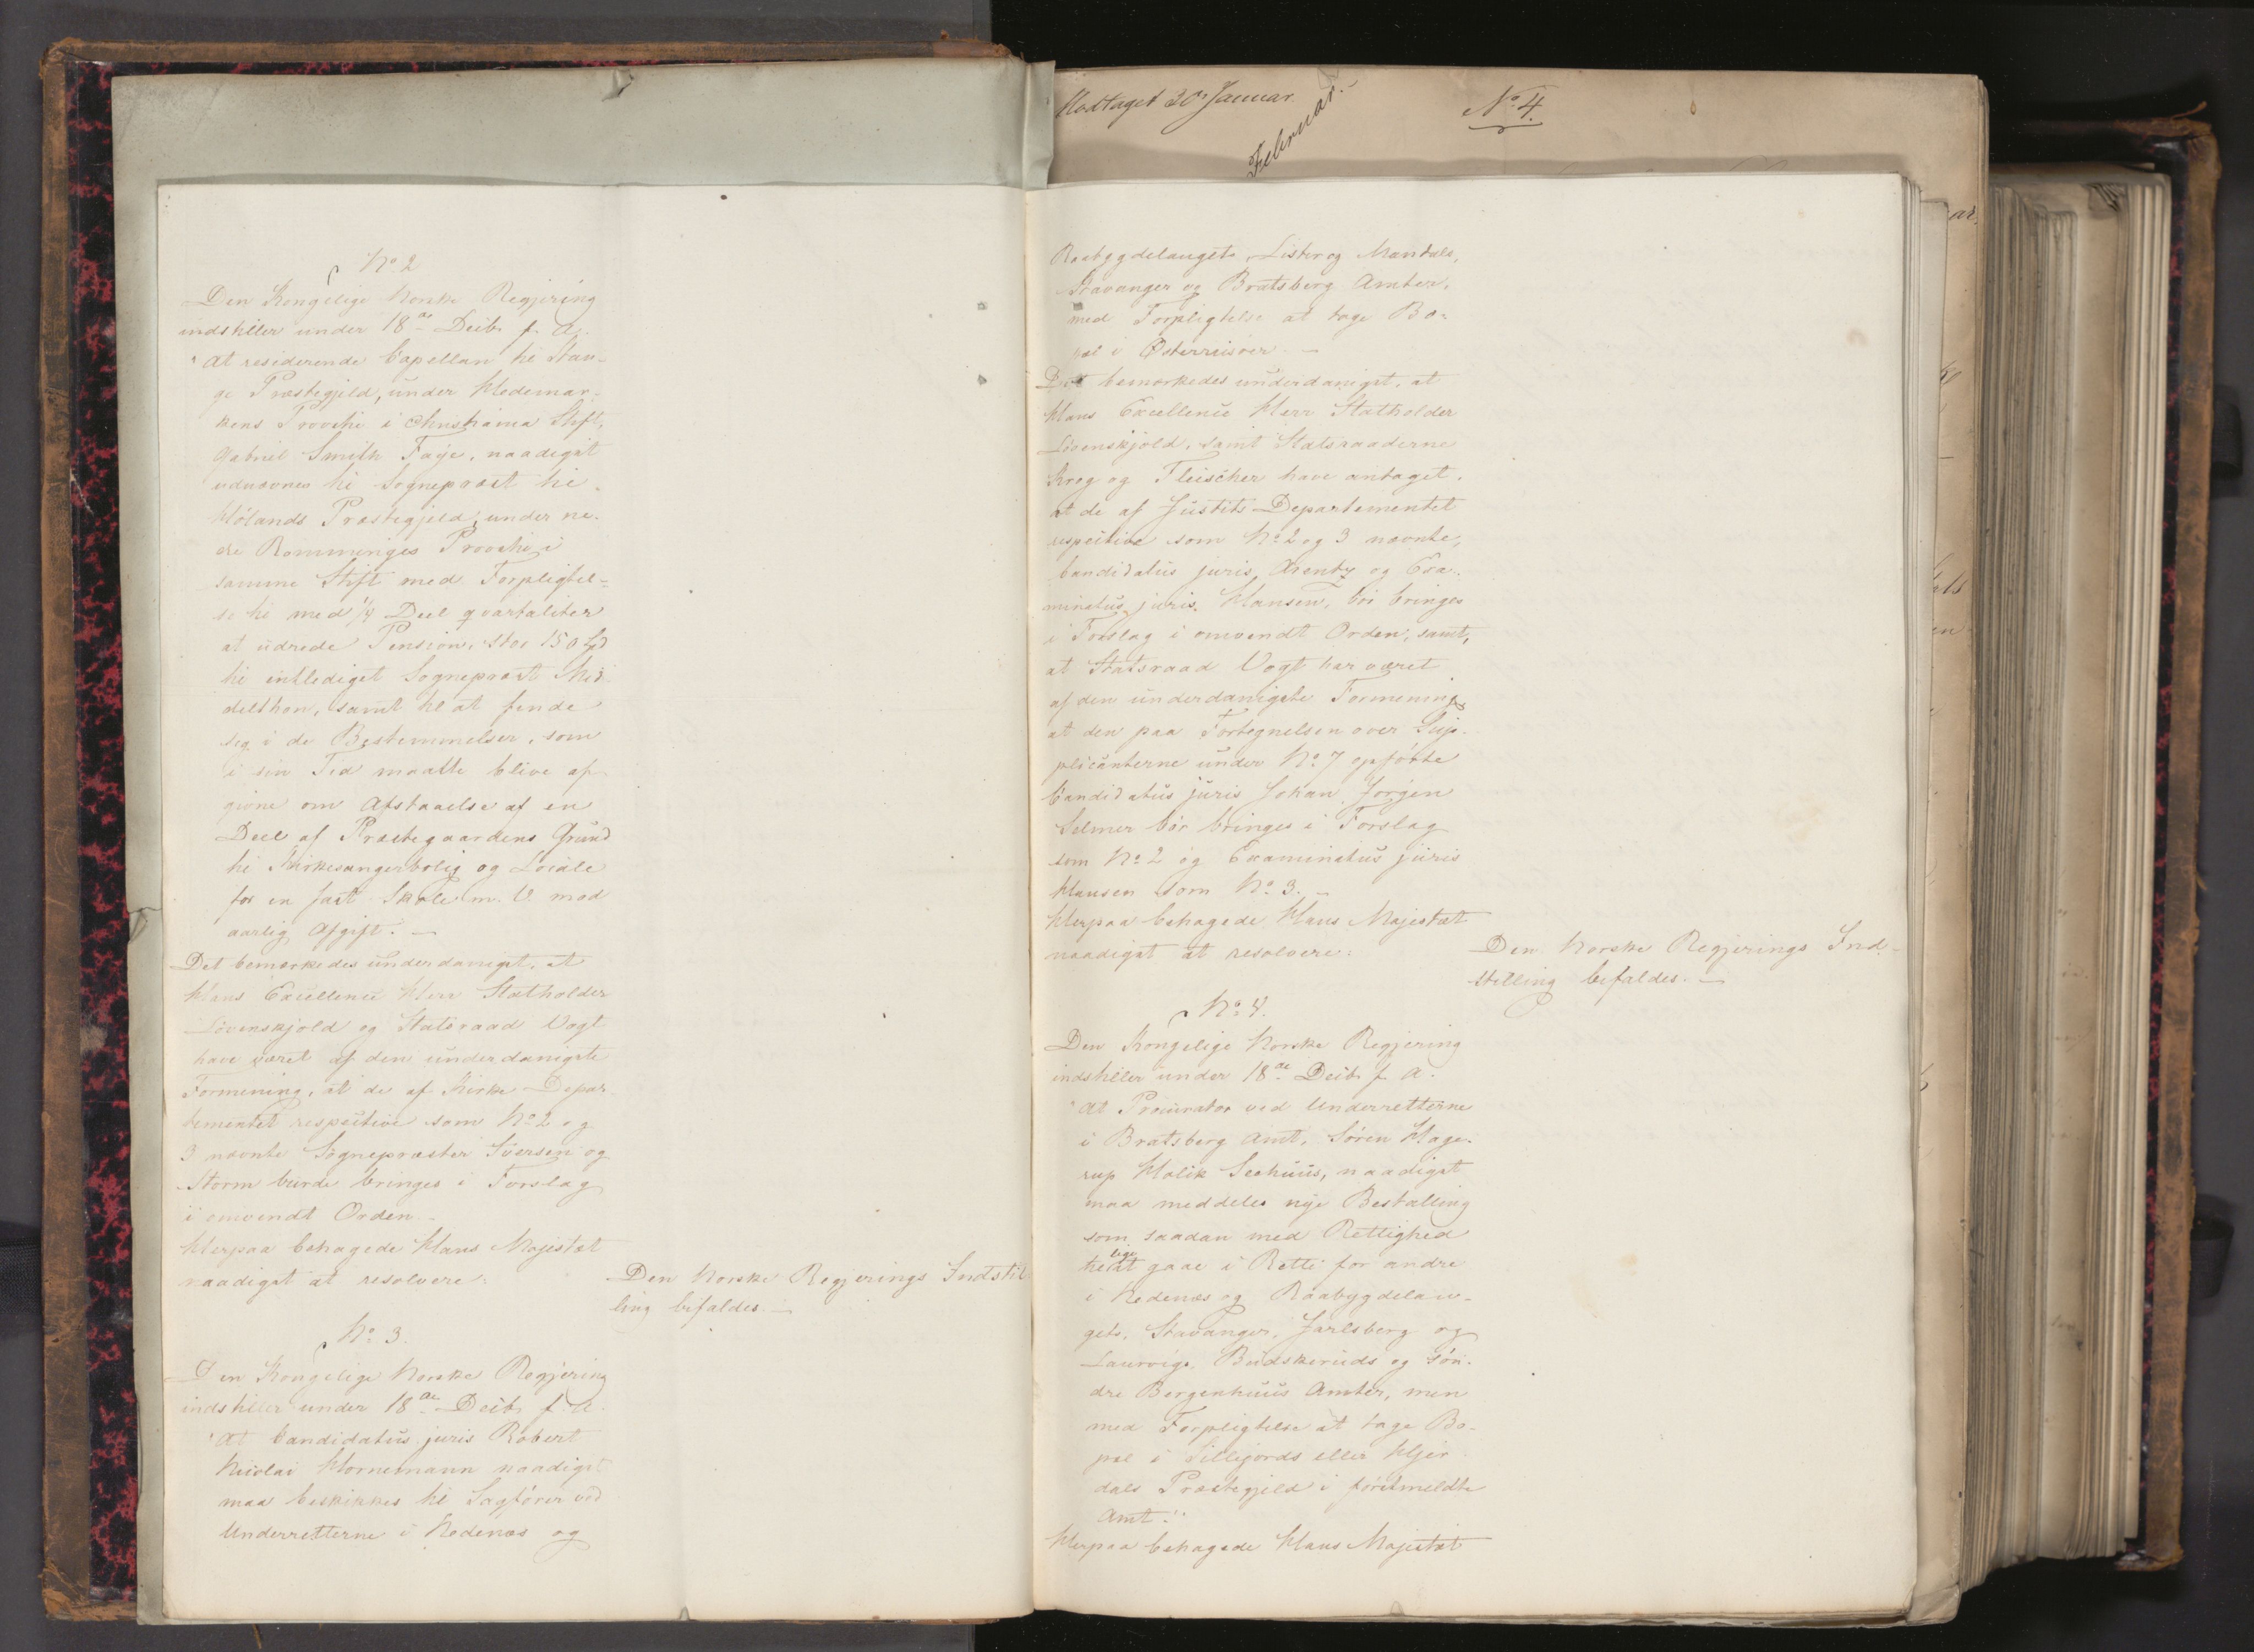 No 2
Den Kongelige Norske Regjering
indstiller under 18de Decbr f. A.
"at residerende Capellan til Stan-
ge Præstegjeld, under Hedemar-
kens Provsti i Christiania Stift,
Gabriel Smith Faye, naadigst
udnævnes til Sognepræst til
Hölands Præstegjeld, under ne-
dre Rommeriges Provsti i
samme Stift med Forpligtel-
se til med ¼ Deel qvartaliter
at udrede Pension, stor 150 Spd
til entlediget Sognepræst Mid-
delthon, samt til at finde
sig i de Bestemmelser, som
i sin Tid maatte blive af-
givne om Afstaaelse af en
Deel af Præstegaardens Grund
til Kirkesangerbolig og Locale
for en fast Skole m. V. mod
aarlig Afgift. —
Det bemærkedes underdanigst, at
Hans Excellence Herr Statholder
Lövenskjold og Statsraad Vogt
have været af den underdanigste
Formening, at de af Kirke-Depar-
tementet respective som No 2 og
3 nævnte Sognepræster Iversen og
Storm burde bringes i Forslag
i omvendt Orden. —
Herpaa behagede Hans Majestæt
naadigst at resolvere:
Den Norske Regjerings Indstil
ling bifaldes. —
No 3.
Den Kongelige Norske Regjering
indstiller under 18de Decbr f. A.
"at Candidatus juris Robert
Nicolai Hornemann naadigst
maa beskikkes til Sagförer ved
Underretterne i Nedenæs og
Modtaget 30te Januar.
Februar.
No 4.
Raabygdelaugets, Lister og Mandals,
Stavanger og Bratsberg Amter,
med Forpligtelse at tage Bo-
pæl i Österriisöer. —
Det bemærkedes underdanigst, at
Hans Excellence Herr Statholder
Lövenskjold, samt Statsraaderne
Krog og Fleischer have antaget,
at de af Justits-Departementet
respective som No 2 og 3 nævnte,
Candidatus juris Arentz og Exa-
minatus juris Hansen, bör bringes
i Forslag i omvendt Orden, samt,
at Statsraad Vogt har været
af den underdanigste Formening,
at den paa Fortegnelsen over Sup-
plicanterne under No 7 opförte
Candidatus juris Johan Jörgen
Selmer bör bringes i Forslag
som No 2 og Examinatus juris
Hansen som No 3. —
Herpaa behagede Hans Majestæt
naadigst at resolvere:
Den Norske Regjerings Ind-
stilling bifaldes. —
No 4.
Den Kongelige Norske Regjering
indstiller under 18de Decbr f. A.
"at Procurator ved Underretterne
i Bratsberg Amt, Sören Hage-
rup Holik Seehuus, naadigst
maa meddeles nye Bestalling
som saadan med Rettighed
til at gaae i Rette for andre
i Nedenæs og Raabygdelau-
gets, Stavanger, Jarlsberg og
Laurvigs, Budskeruds og sön-
dre Bergenhuus Amter, men
med Forpligtelse at tage Bo-
pæl i Sillejords eller Hjer-
dals Præstegjeld i förstmeldte
Amt."
Herpaa behagede Hans Majestæt